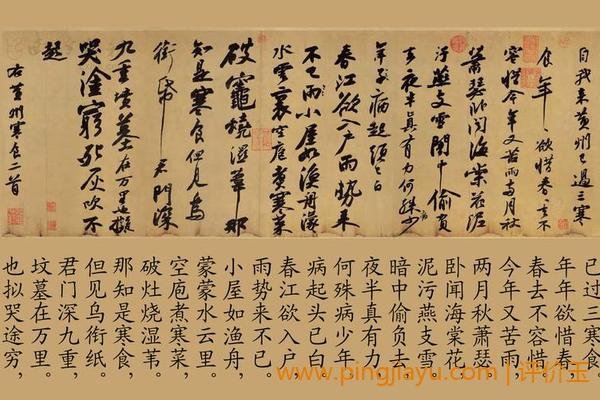 自我来黄州已過三寒
食年〻欲惜春〻去不
容惜今年又苦雨兩月秋
蕭瑟卧聞海棠花泥
汙燕支雪闇中偷負
去夜半真有力何殊少
年子病起頭已白
春江欲入户雨勢来
不已小屋如漁舟濛〻
水雲裏空庖煮寒菜
破竈燒濕葦那
知是寒食但見烏
銜帋君門深
九重墳墓在万里也擬
哭塗窮死灰吹不
起
右黄州寒食二首
已过三寒食。
年年欲惜春,
春去不容惜。
今年又苦雨,
两月秋萧瑟。
卧闻海棠花,
泥污燕支雪。
暗中偷负去,
夜半真有力。
何殊病少年,
病起头已白。
春江欲入户,
雨势来不已。
小屋如渔舟,
蒙蒙水云里。
空庖煮寒菜,
破灶烧湿苇。
那知是寒食,
但见乌衔纸。
君门深九重,
坟墓在万里。
也拟哭途穷,
www.pingjiayu.com | 评价玉